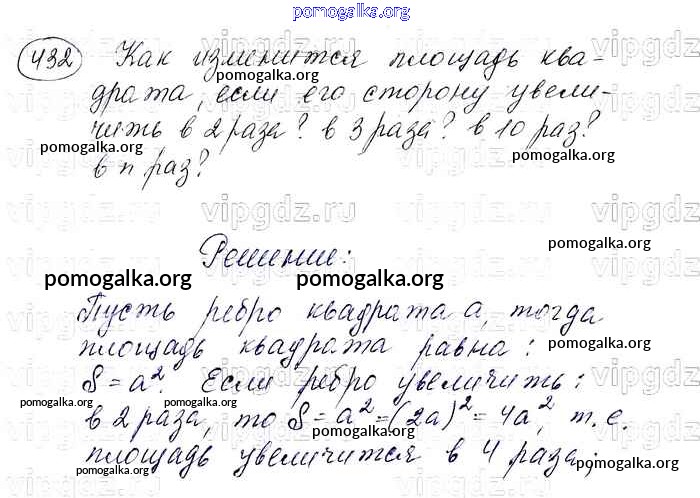 pomogalka.org
432 Как изменится площадь ква-
pomogalka.org
драта, если его сторону увели-
чить в 2 раза? в 3 раза? в 10 раз?
pomogalka.org pomogalka.org pomogalka.org
в n раз?
vipgdz.ru vipgdz.ru
Решение:
pomogalka.org
pomogalka.org pomogalka.org
Пусть ребро квадрата a, тогда
площадь квадрата равна:
pomogalka.org
S = a². Если ребро увеличить:
pomogalka.org
в 2 раза, то S = a² = (2a)² = 4a², т.е.
pomogalka.org pomogalka.org
площадь увеличится в 4 раза;
pomogalka.org pomogalka.org